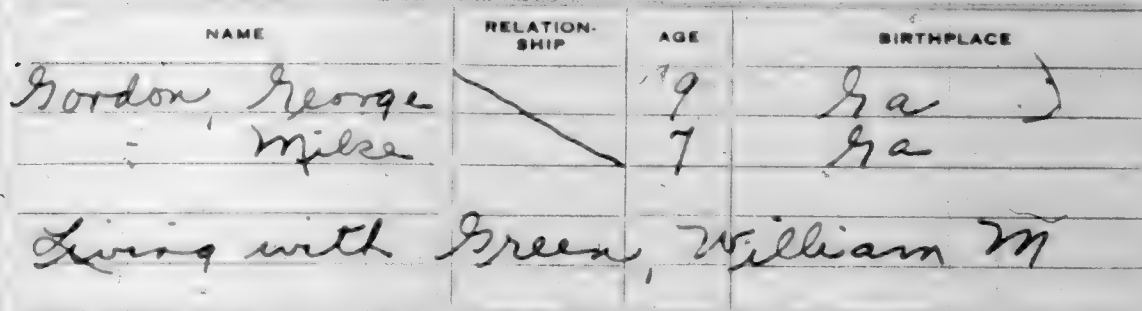 NAME RELATION-SHIP AGE BIRTHPLACE
Gordon, George 9 Ga
" Milse 7 Ga
Living with Green, William M